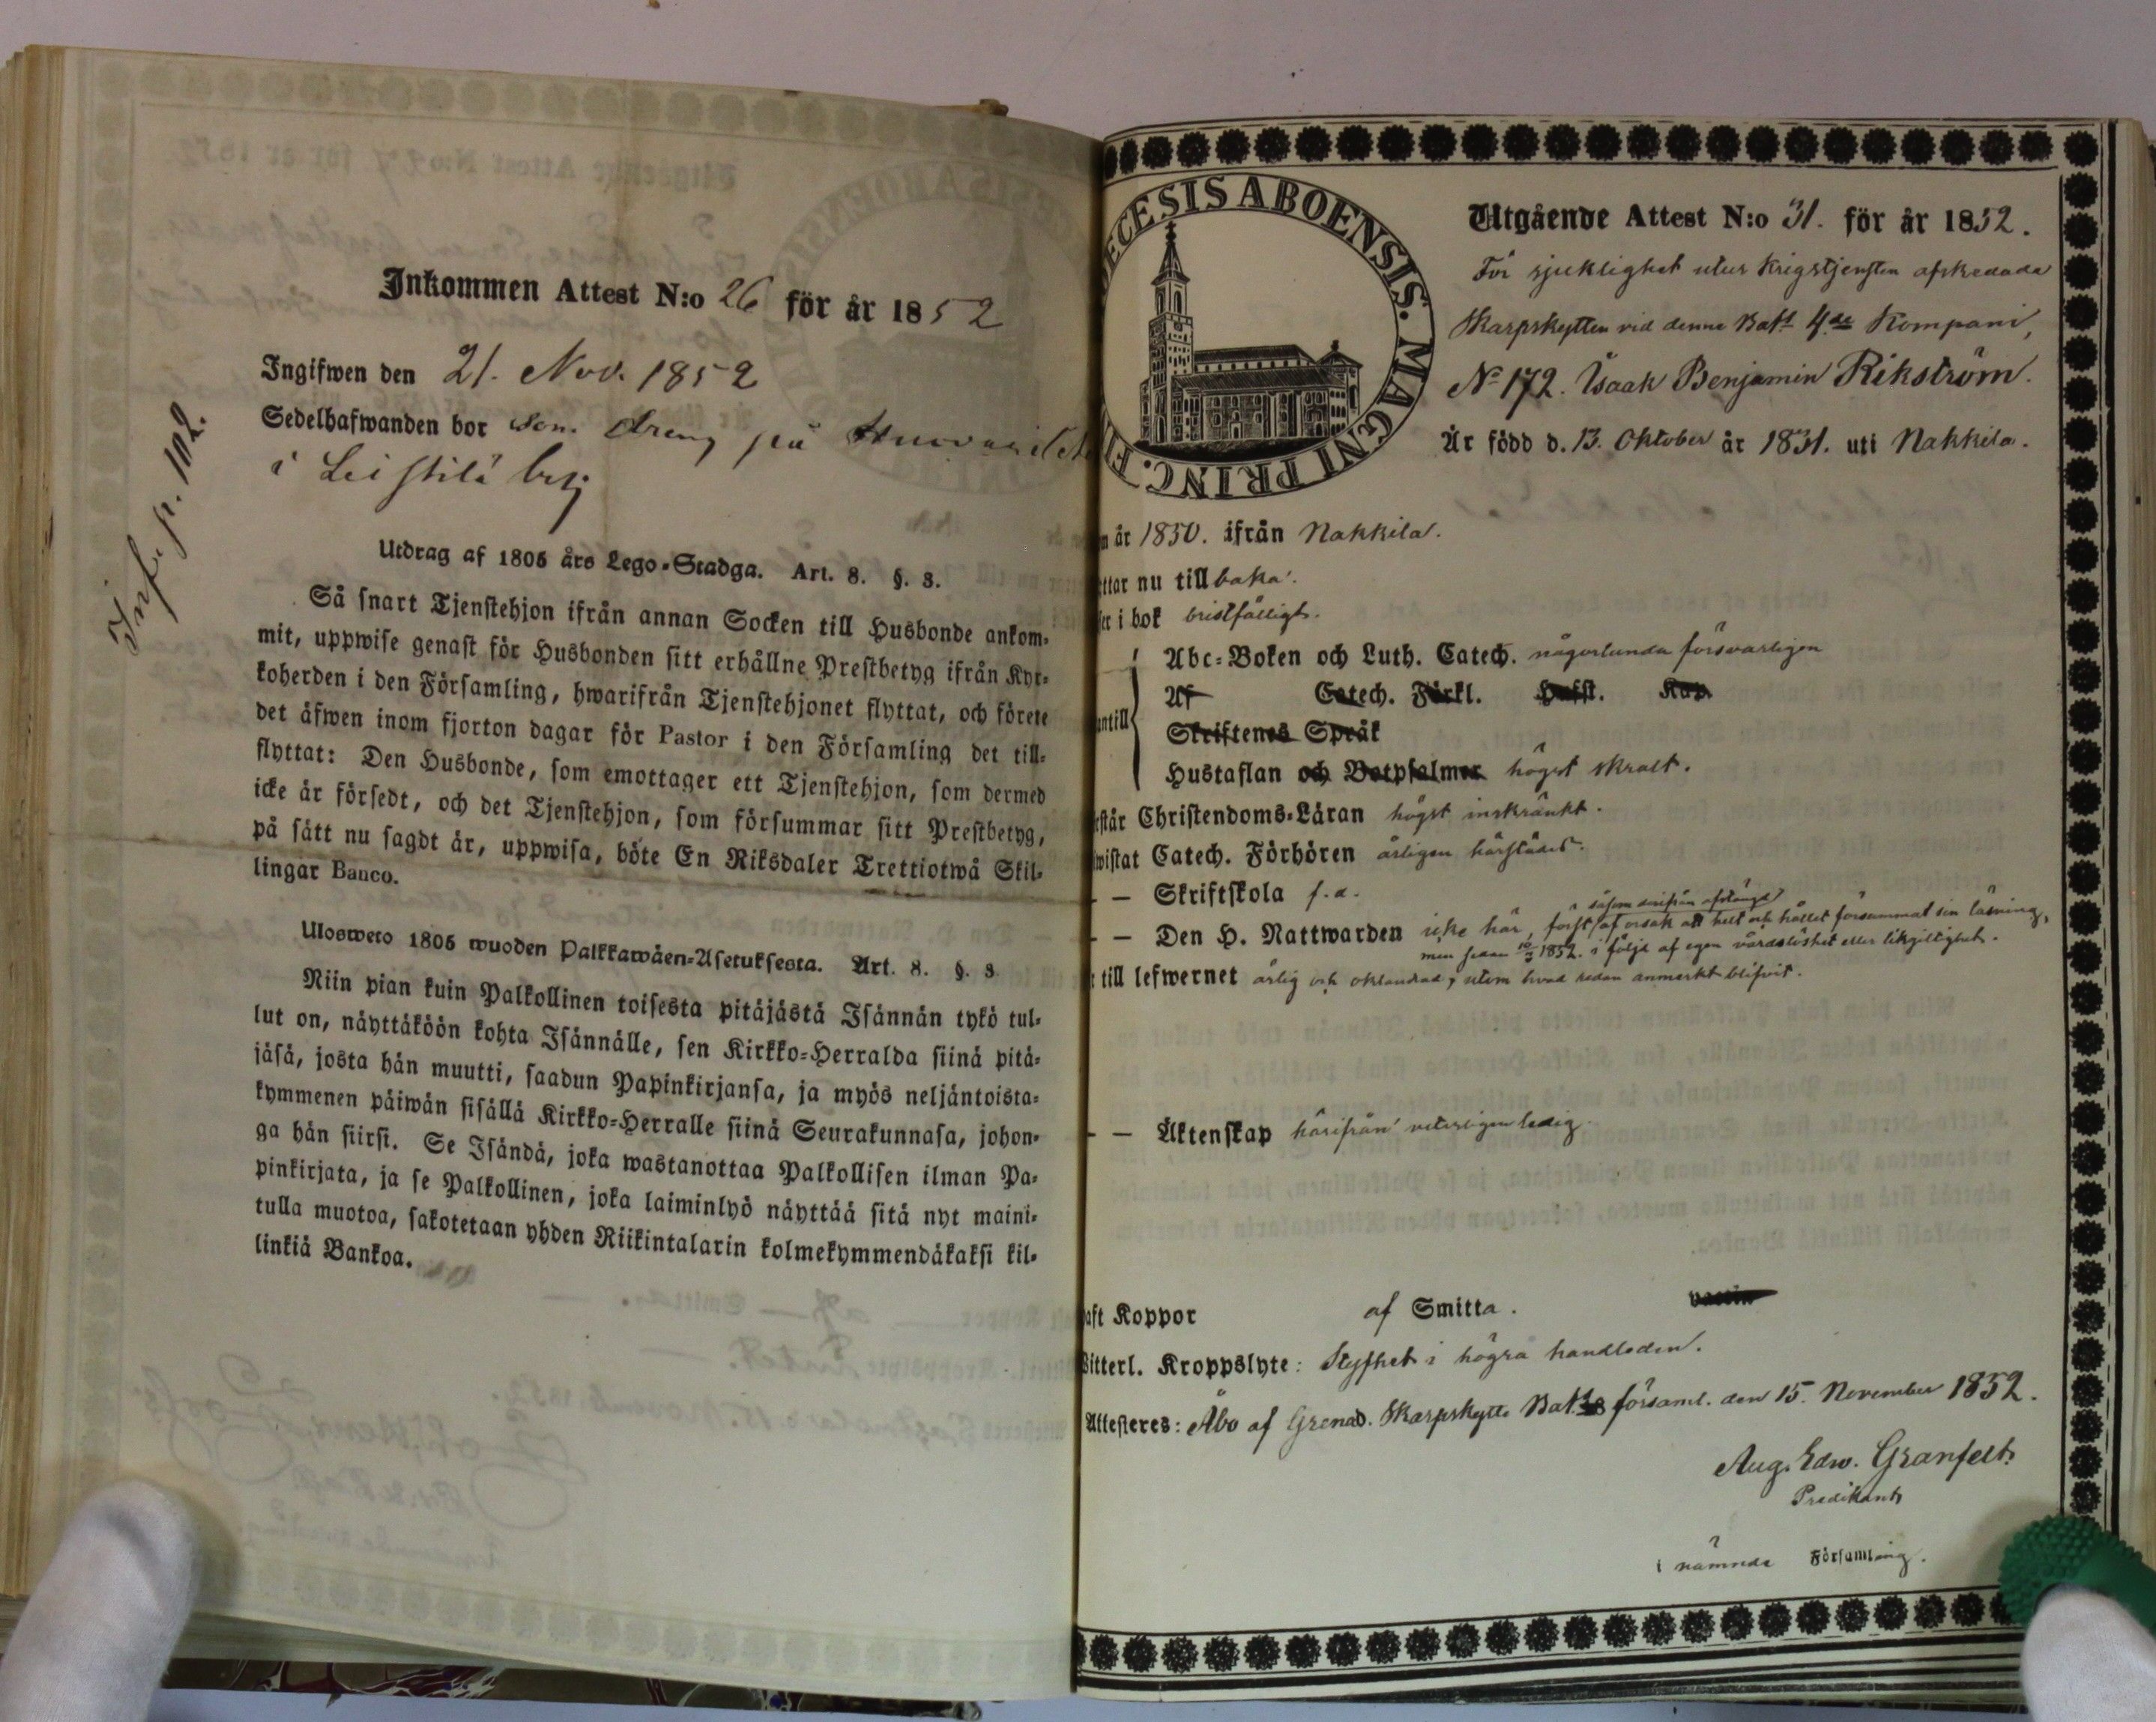 Inkommen Attest N:o 26 för år 1852
Ingifwen den 21. Nov. 1852
Sedelhafwanden bor som dreng på
i Leistilä by
Inf. p. 102.
Utdrag af 1805 års Lego-Stadga. Art. 8. §. 3.
Så snart Tjenstehjon ifrån annan Socken till Husbonde ankom-
mit, uppwise genast för Husbonden sitt erhållne Prestbetyg ifrån Kyr-
koherden i den Församling, hwarifrån Tjenstehjonet flyttat, och förete
det äfwen inom fjorton dagar för Pastor i den Församling det till-
flyttat: Den Husbonde, som emottager ett Tjenstehjon, som dermed
icke är försedt, och det Tjenstehjon, som försummar sitt Prestbetyg,
på sätt nu sagdt är, uppwisa, böte En Riksdaler Trettiotwå Skil-
lingar Banco.
Ulosweto 1805 wuoden Palkkawäen-Asetuksesta. Art. 8. §. 3
Niin pian kuin Palkollinen toisesta pitäjästä Isännän tykö tul-
lut on, näyttäköön kohta Isännälle, sen Kirkko-Herralda siinä pitä-
jäsä, josta hän muutti, saadun Papinkirjansa, ja myös neljäntoista-
kymmenen päiwän sisällä Kirkko-Herralle siinä Seurakunnasa, johon-
ga hän siirsi. Se Isändä, joka wastanottaa Palkollisen ilman Pa-
pinkirjata, ja se Palkollinen, joka laiminlyö näyttää sitä nyt maini-
tulla muotoa, sakotetaan yhden Riikintalarin kolmekymmendäkaksi kil-
linkiä Bankoa.
ECESIS ABOENSIS. MAGNI PRINC. F
Utgående Attest N:o 31. för år 1852.
För sjuklighet utur Krigstjensten afskedade
Skarpskytten vid denne Batt 4de Kompani,
No 172. Isaak Benjamin Rikström.
Är född d. 13. Oktober år 1831. uti Nakkila.
m år 1850. ifrån Nakkila.
ttar nu till baka.
ser i bok bristfälligt.
antill
Abc-Boken och Luth. Catech. någorlunda försvarligen
Af Catech. Förkl. Husst. Kap
Skriftenes Språk
Hustaflan och Botpsalmer högst skralt.
rstår Christendoms-Läran högst inskränkt.
wistat Catech. Förhören årligen härstädes.
— Skriftskola s. d.
såsom derifrån afstängd
— Den H. Nattwarden icke här, först af orsak att helt och hållet försummat sin läsning,
men sedan 10/3 1852. i följd af egen vårdslöshet eller likgiltighet.
till lefwernet ärlig och oklandrad, utom hvad redan anmerkt blifvit.
— Äktenskap härifrån veterligen ledig.
aft Koppor af Smitta. vaccin
Witterl. Kroppslyte: Styfhet i högra handleden.
Attesteres: Åbo af Grenad. Skarpskytte Bat:s församl. den 15 November 1852.
Aug. Edw. Granfelt
Predikant
i nämnde Församling.